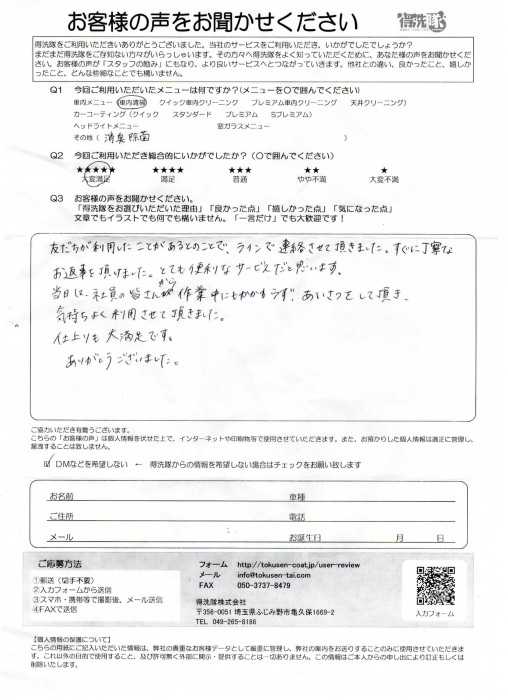 お客様の声をお聞かせください
得洗隊
得洗隊をご利用いただきありがとうございました。当社のサービスをご利用いただき、いかがでしたでしょうか?
まだまだ得洗隊をご存知ない方々がいらっしゃいます。その方々へ得洗隊をよく知っていただくために、あなた様の声をお聞かせください。お客様の声が「スタッフの励み」にもなり、より良いサービスへとつながっていきます。他社との違い、良かったこと、嬉しかったこと、どんな些細なことでも構いません。
Q1 今回ご利用いただいたメニューは何ですか?(メニューを〇で囲んでください)
車内メニュー (車内清掃 クイック車内クリーニング プレミアム車内クリーニング 天井クリーニング)
カーコーティング (クイック スタンダード プレミアム Sプレミアム)
ヘッドライトメニュー 窓ガラスメニュー
その他 ( 消臭除菌 )
Q2 今回ご利用いただき総合的にいかがでしたか?(〇で囲んでください)
★★★★★ ★★★★ ★★★ ★★ ★
大変満足 満足 普通 やや不満 大変不満
Q3 お客様の声をお聞かせください。
「得洗隊をお選びいただいた理由」「良かった点」「嬉しかった点」「気になった点」
文章でもイラストでも何でも構いません。「一言だけ」でも大歓迎です!
友だちが利用したことがあるとのことで、ラインで連絡させて頂きました。すぐに丁寧な
お返事を頂けました。とても便利なサービスだと思います。
当日は、社員の皆さんから作業中にもかかわらず、あいさつをして頂き、
気持ちよく利用させて頂きました。
仕上りも大満足です。
ありがとうございました。
ご協力いただき有難うございます。
こちらの「お客様の声」は個人情報を伏せた上で、インターネットや印刷物等で使用させていただきます。また、お預かりした個人情報は適正に管理し、
漏洩することは致しません。
☑ DMなどを希望しない ← 得洗隊からの情報を希望しない場合はチェックをお願い致します
お名前 車種
ご住所 電話
メール お誕生日 月 日
ご応募方法
①郵送(切手不要)
②入力フォームから送信
③スマホ・携帯等で撮影後、メール送信
④FAXで送信
フォーム http://tokusen-coat.jp/user-review
メール info@tokusen-tai.com
FAX 050-3737-8479
得洗隊株式会社
〒356-0051 埼玉県ふじみ野市亀久保1669-2
TEL 049-265-6186
入力フォーム
【個人情報の保護について】
こちらの用紙にご記入いただいた情報は、弊社の貴重なお客様データとして厳重に管理し、弊社の案内をお送りすることのみに使用させていただきます。これ以外の目的で使用すること、及び許可無く外部に開示・提供することは一切ありません。この情報はご本人からの申し出により訂正もしくは削除いたします。